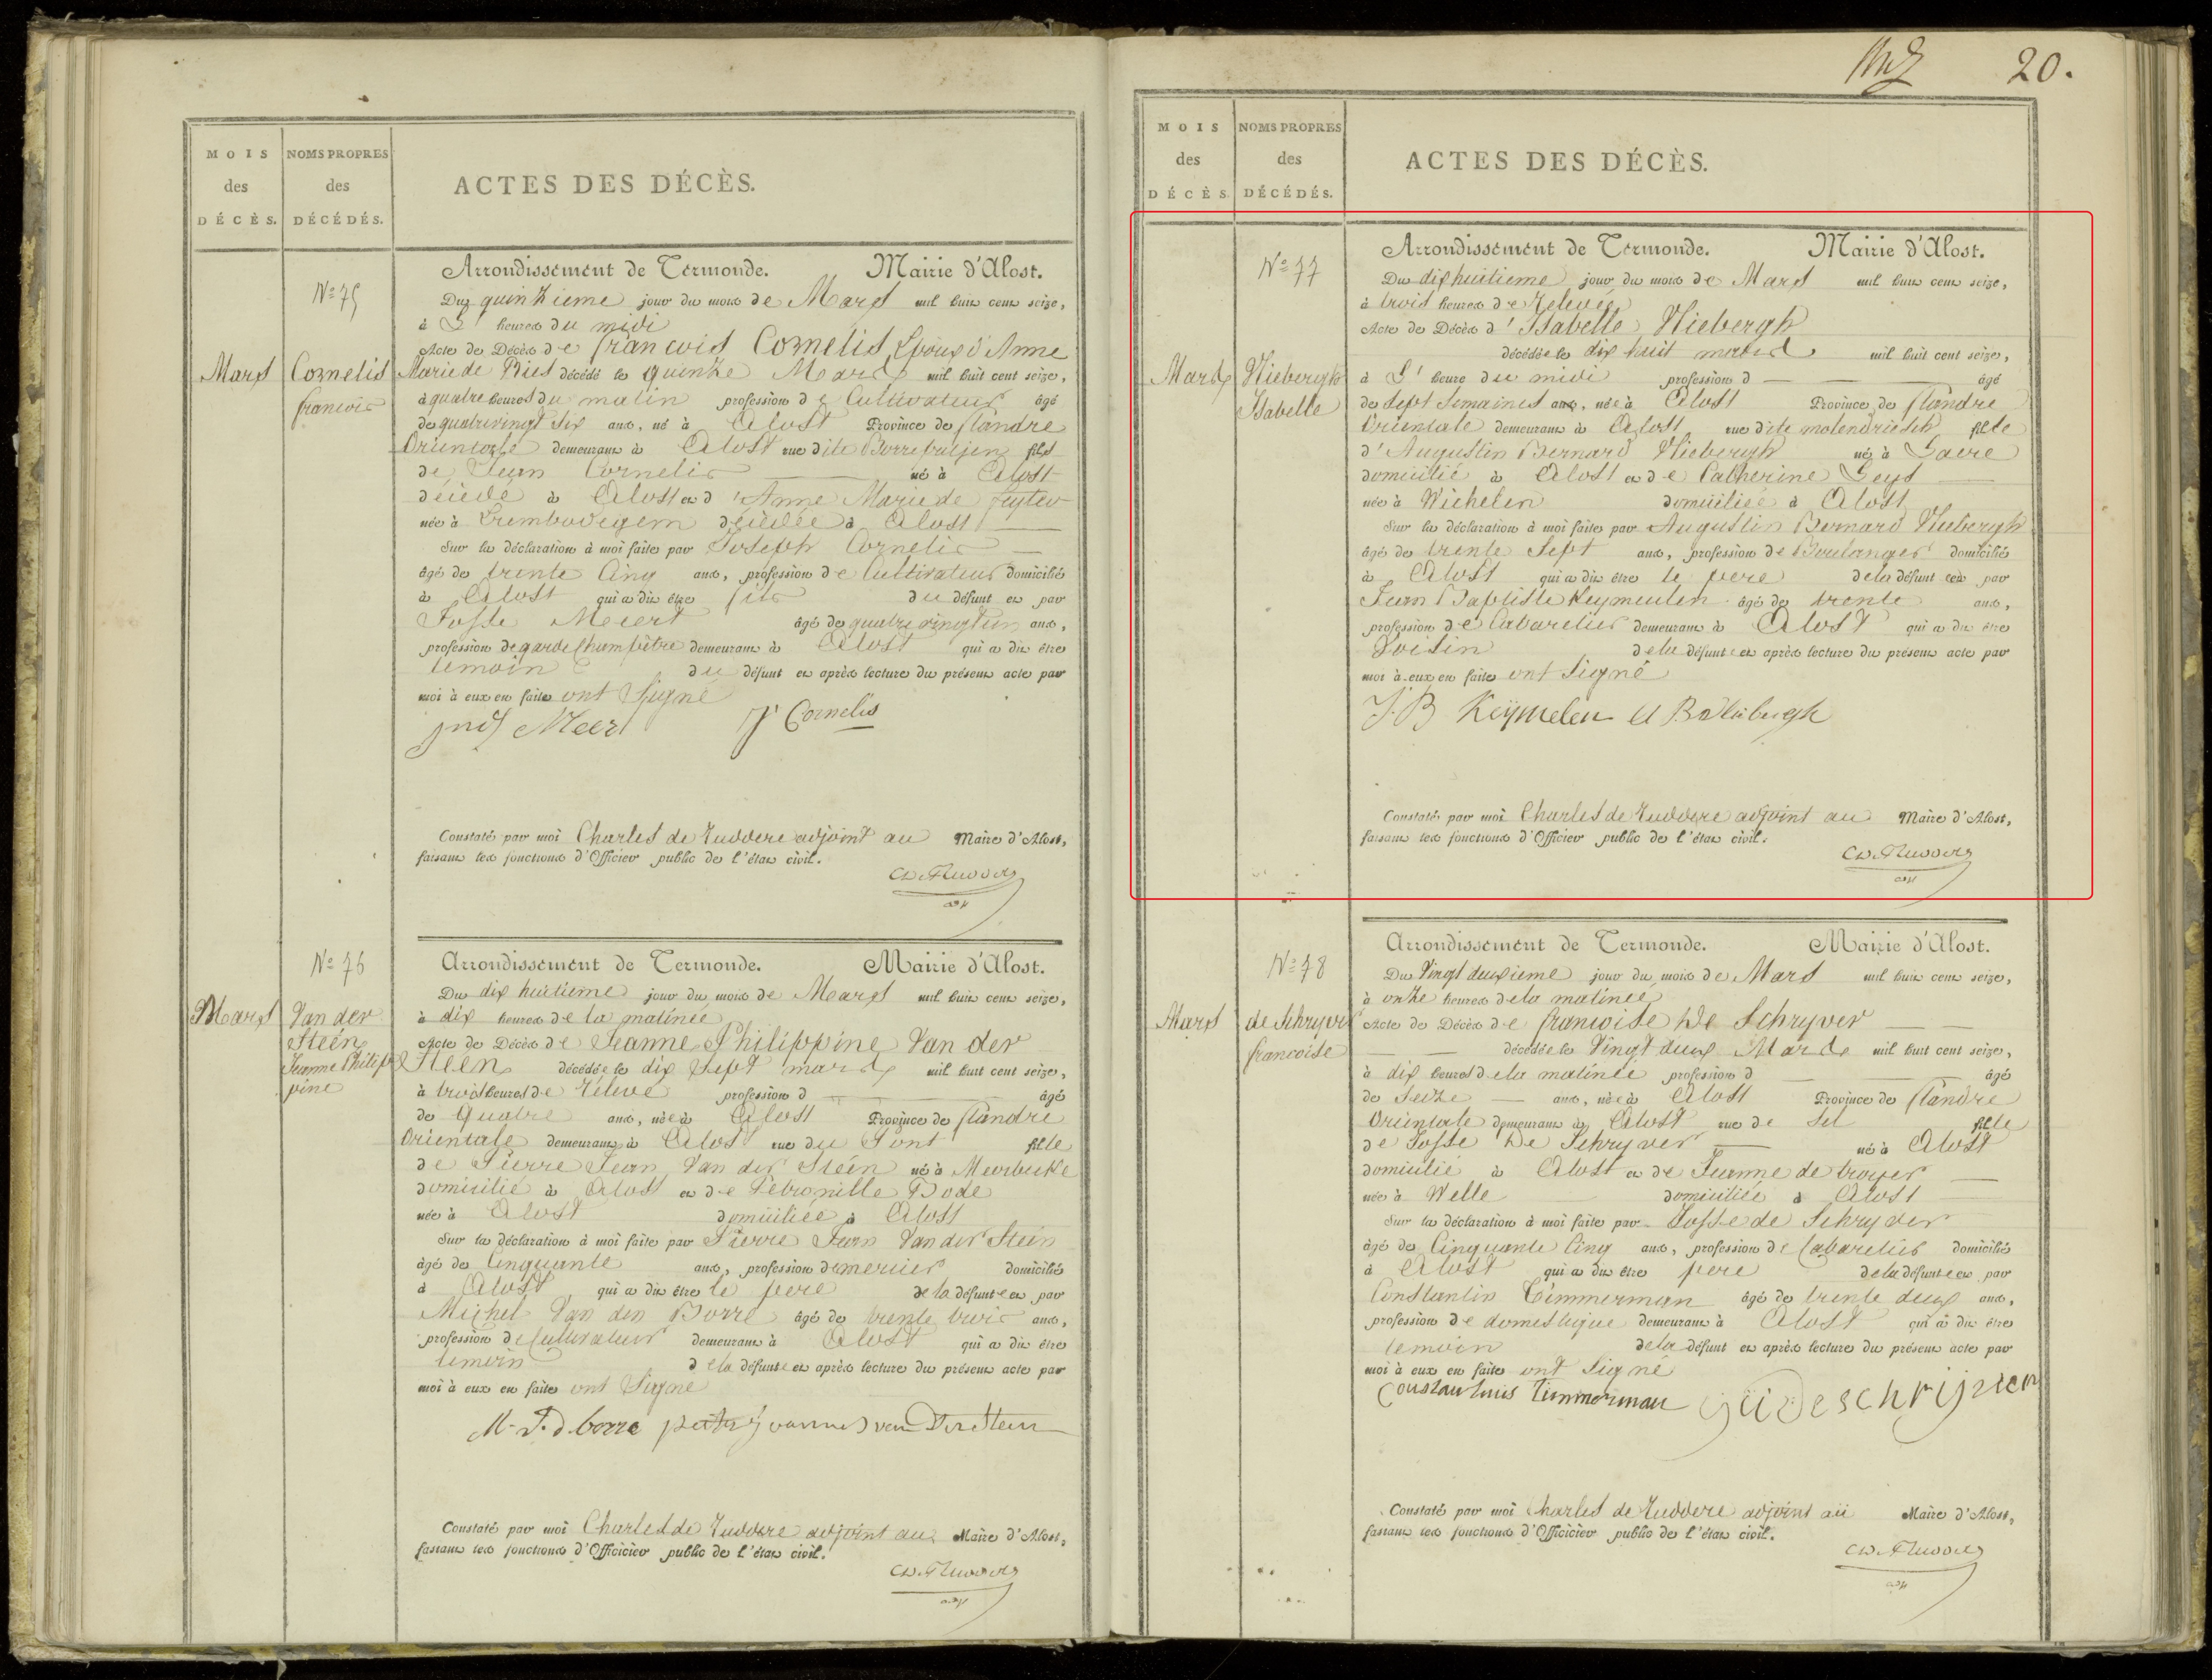 20.
MOIS
des
DÉCÈS.
NOMS PROPRES
des
DÉCÉDÉS.
ACTES DES DÉCÈS.
Nº 75
Mars
Cornelis
francois
Arrondissement de Termonde. Mairie d'Alost.
Du quinzieme jour du mois de Mars mil huit cent seize,
à L' heure du midi
Acte de Décès de francois Cornelis Epoux d'Anne
Marie de Pies décédé le quinze Mars mil huit cent seize,
à quatre heures du matin profession de Cultivateur âgé
de quatrevingt Six ans, né à Alost Province de flandre
Orientale demeurant à Alost rue dite fils
de Jean Cornelis né à Alost
décédé à Alost et d'Anne Marie de
née à Erembodegem décédée à Alost
Sur la déclaration à moi faite par Joseph Cornelis
âgé de trente Cinq ans, profession de Cultivateur domicilié
à Alost qui a dit être fils du défunt et par
Josse Meert âgé de quatrevingt un ans,
profession de garde Champêtre demeurant à Alost qui a dit être
temoin du défunt et après lecture du présent acte par
moi à eux en faite ont Signé
Meert J Cornelis
Constaté par moi Charles de Ruddere adjoint au Maire d'Alost,
faisant les fonctions d'Officier public de l'état civil.
Nº 76
Mars
Van der
Steen
Jeanne Philip
pine
Arrondissement de Termonde. Mairie d'Alost.
Du dix huitieme jour du mois de Mars mil huit cent seize,
à dix heures de la matinée
Acte de Décès de Jeanne Philippine Van der
Steen décédée le dix Sept mars mil huit cent seize,
à trois heures de relevé profession d âgé
de Quatre ans, née à Alost Province de flandre
Orientale demeurant à Alost rue du Pont fille
de Pierre Jean Van der Steen né à Meerbeke
domicilié à Alost et de Petronille Bode
née à Alost domiciliée à Alost
Sur la déclaration à moi faite par Pierre Jean Van der Steen
âgé de Cinquante ans, profession de mercier domicilié
à Alost qui a dit être le pere de la défunte et par
Michel Van den Borre âgé de trente trois ans,
profession de Cultivateur demeurant à Alost qui a dit être
temoin de la défunte et après lecture du présent acte par
moi à eux en faite ont Signé
M. V. d. borre van Der Steen
Constaté par moi Charles de Ruddere adjoint au Maire d'Alost,
faisant les fonctions d'Officicier public de l'état civil.
MOIS
des
DÉCÈS.
NOMS PROPRES
des
DÉCÉDÉS.
ACTES DES DÉCÈS.
Nº 77
Mars
Wiebergh
Isabelle
Arrondissement de Termonde. Mairie d'Alost.
Du dixhuitieme jour du mois de Mars mil huit cent seize,
à trois heures de Relevée
Acte de Décès d'Isabelle Wiebergh
décédée le dix huit mars mil huit cent seize,
à L' heure du midi profession d âgé
de Sept Semaines ans, née à Alost Province de flandre
Orientale demeurant à Alost rue dite molendriesch fille
d'Augustin Bernard Wiebergh né à Gavre
domicilié à Alost et de Catherine Geys
née à Wichelen domiciliée à Alost
Sur la déclaration à moi faite par Augustin Bernard Wiebergh
âgé de trente Sept ans, profession de Boulanger domicilié
à Alost qui a dit être le pere de la défunte et par
Jean Baptiste Keymeulen âgé de trente ans,
profession de Cabaretier demeurant à Alost qui a dit être
Voisin de la défunte et après lecture du présent acte par
moi à eux en faite ont Signé
J. B Keÿmelen A B Wiebergh
Constaté par moi Charles de Ruddere adjoint au Maire d'Alost,
faisant les fonctions d'Officier public de l'état civil.
Nº 78
Mars
de Schryver
francoise
Arrondissement de Termonde. Mairie d'Alost.
Du Vingt deuxieme jour du mois de Mars mil huit cent seize,
à onze heures de la matinée
Acte de Décès de francoise De Schryver
décédée le Vingt deux Mars mil huit cent seize,
à dix heures de la matinée profession d âgé
de Seize ans, née à Alost Province de flandre
Orientale demeurant à Alost rue de Sel fille
de Josse De Schryver né à Alost
domicilié à Alost et de Jeanne de troyer
née à Welle domiciliée à Alost
Sur la déclaration à moi faite par Josse de Schryver
âgé de Cinquante Cinq ans, profession de Cabaretier domicilié
à Alost qui a dit être pere de la défunte et par
Constantin Timmerman âgé de trente deux ans,
profession de domestique demeurant à Alost qui a dit être
temoin de la défunt et après lecture du présent acte par
moi à eux en faite ont Signé
Constantinus Timmerman Deschrijver
Constaté par moi Charles de Ruddere adjoint au Maire d'Alost,
faisant les fonctions d'Officicier public de l'état civil.